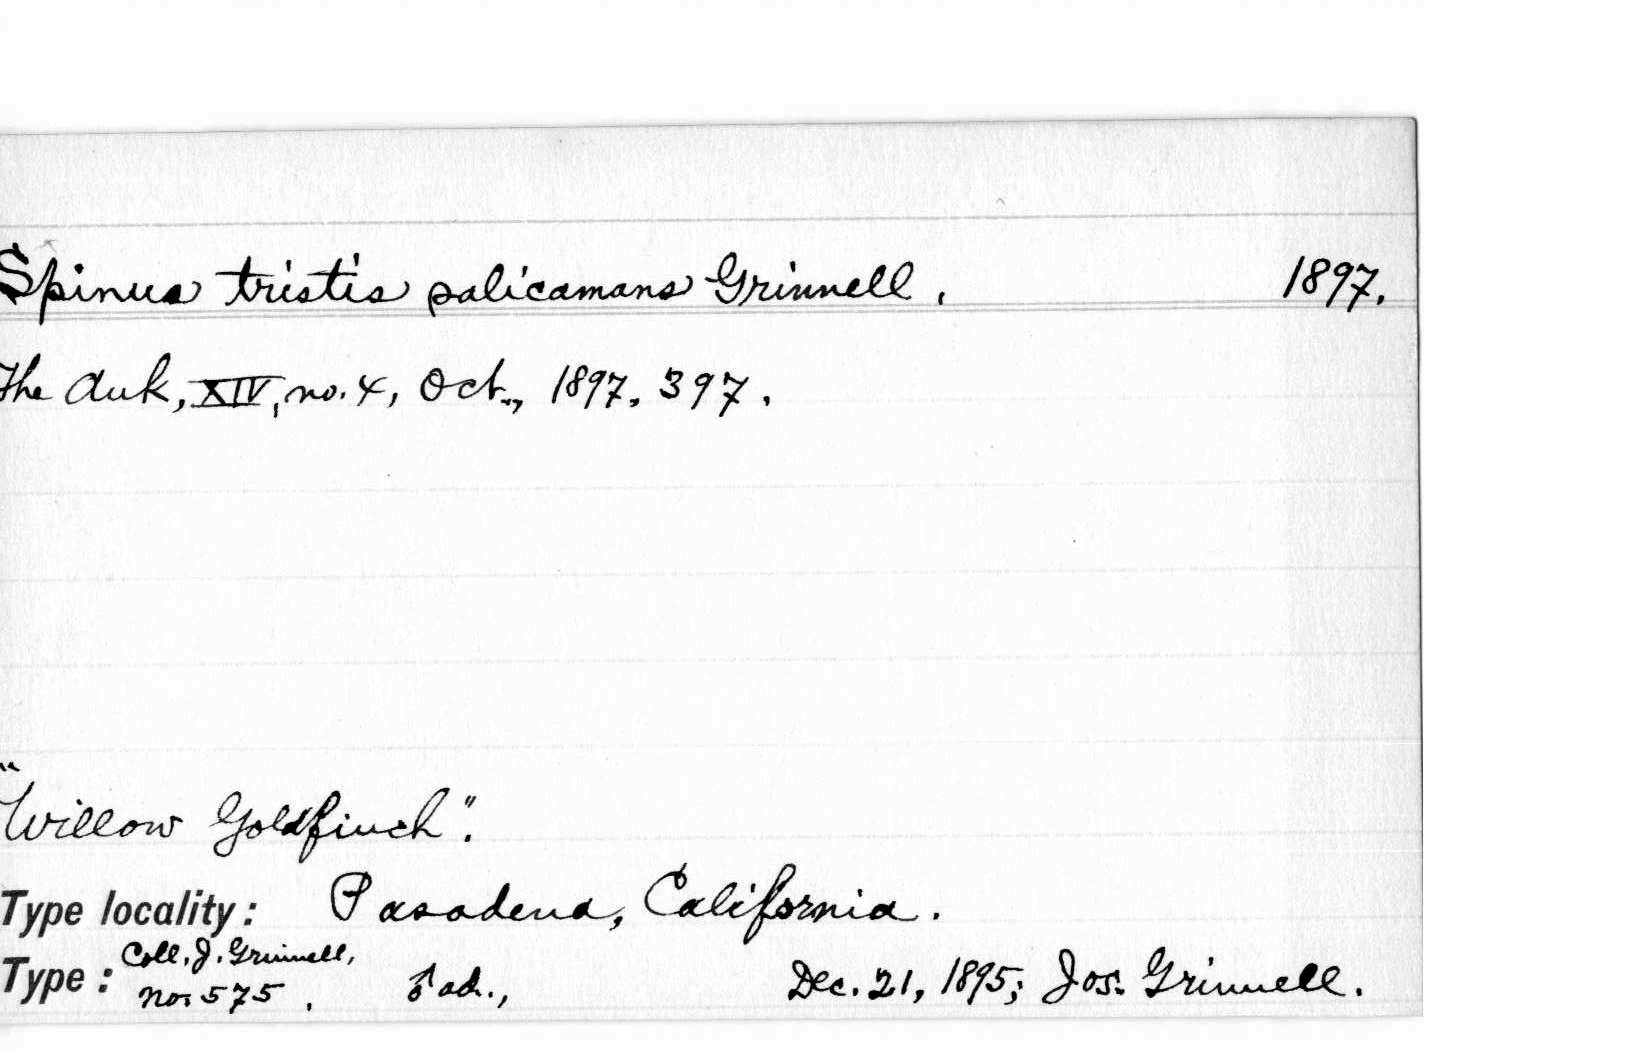 Spinus tristis salicamans Grinnell. 1897.
The Auk, XIV, no. 4, Oct., 1897, 397.
"Willow Goldfinch".
Type locality: Pasadena, California.
Coll. J. Grinnell,
Type: no. 575. ♂ ad., Dec. 21, 1895; Jos. Grinnell.